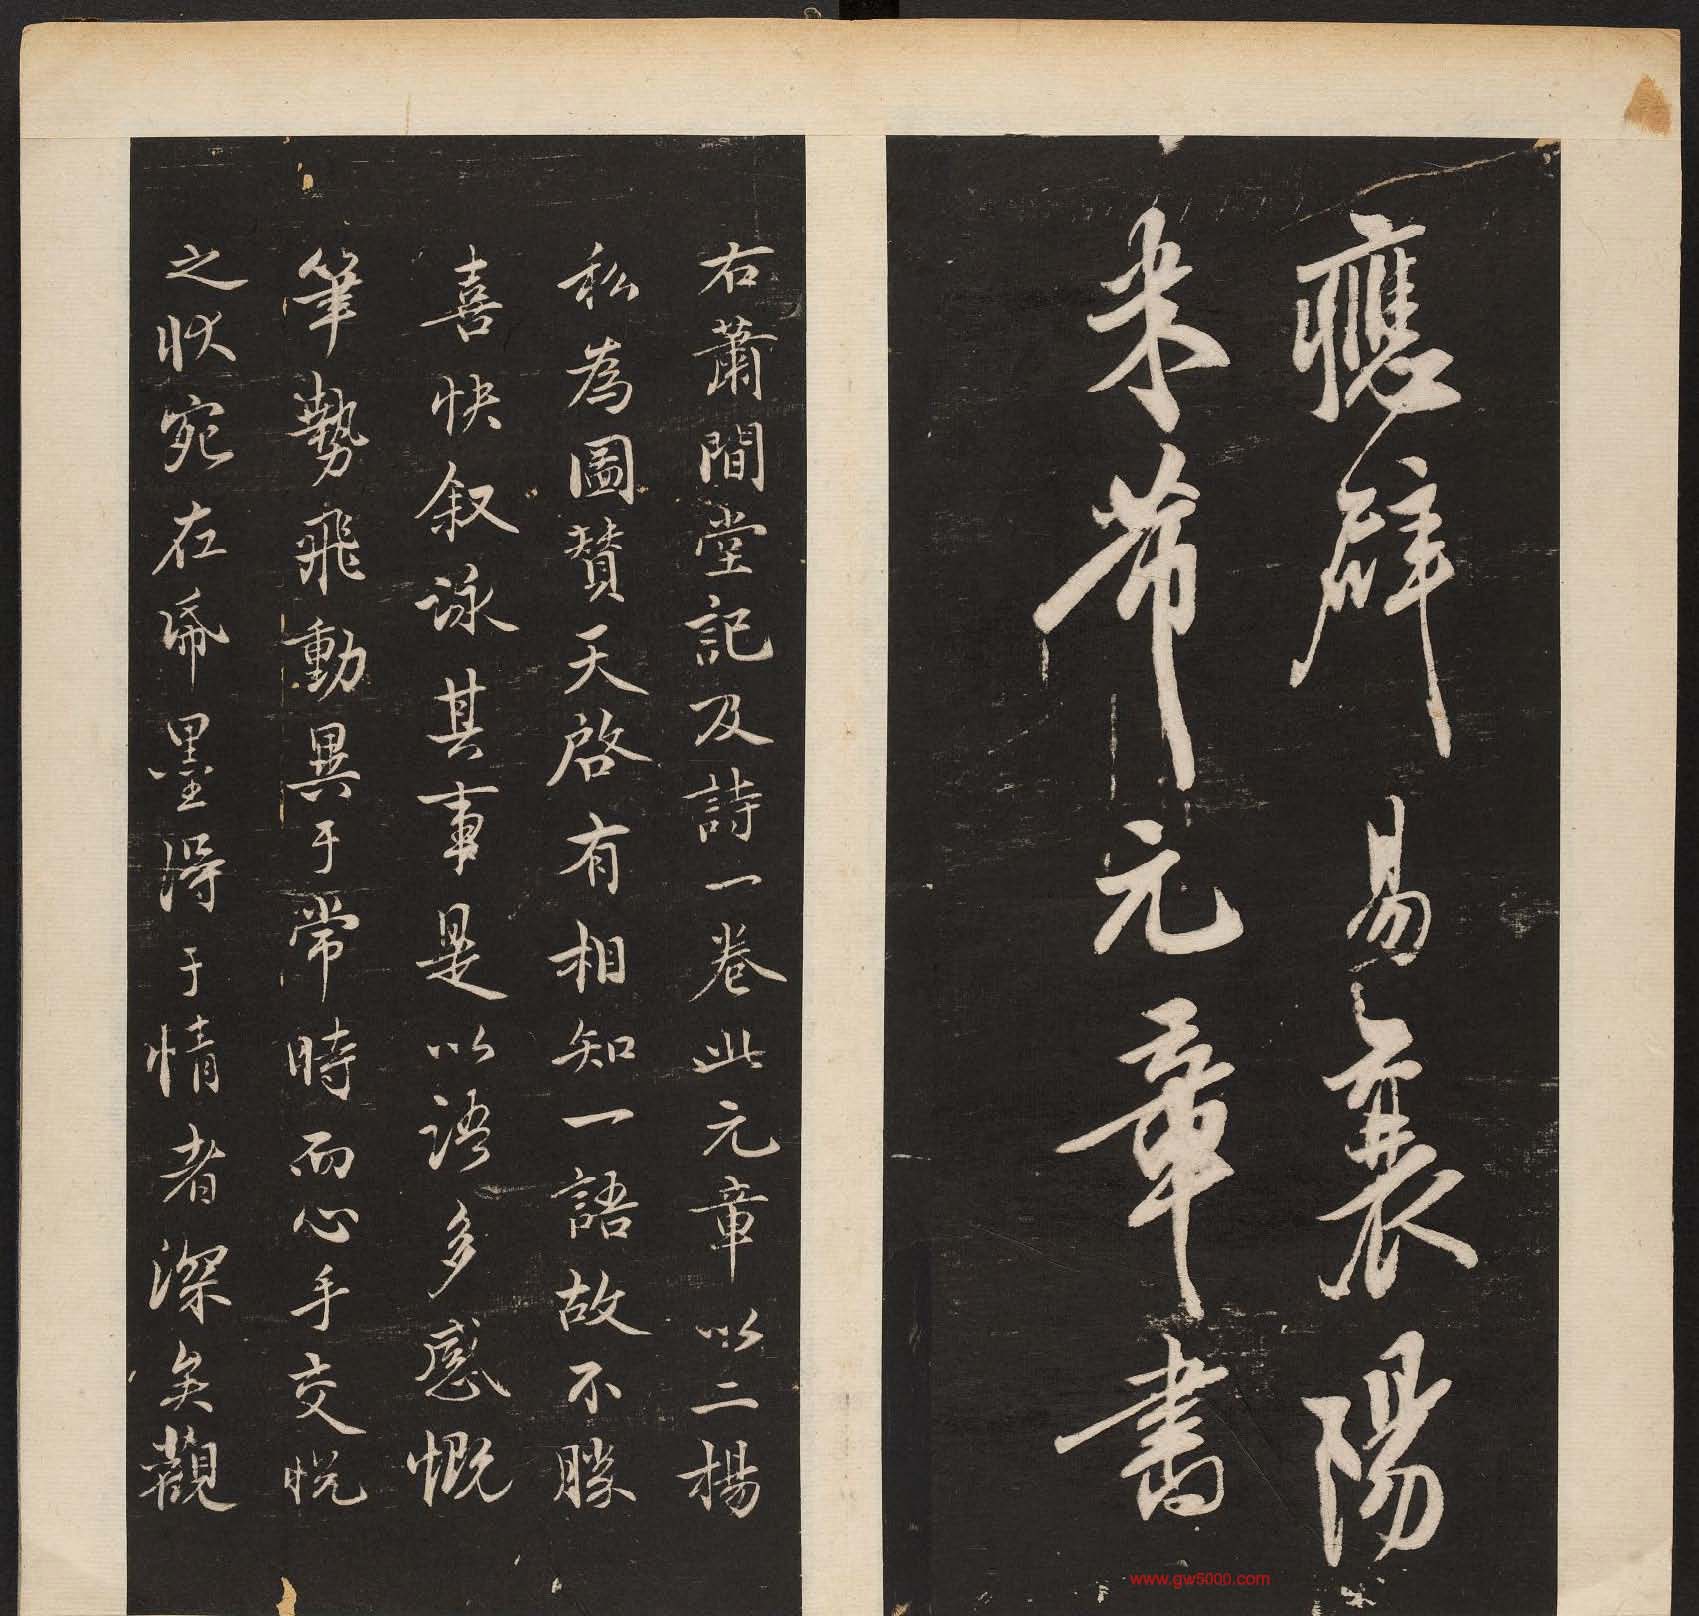 應辟易襄陽
米芾元章書
右蕭閒堂記及詩一卷此元章以二楊
私為圖贊天啓有相知一語故不勝
喜快叙詠其事是以語多感慨
筆勢飛動異于常時而心手交悦
之状宛在帋墨淂于情者深矣觀
www.gw5000.com